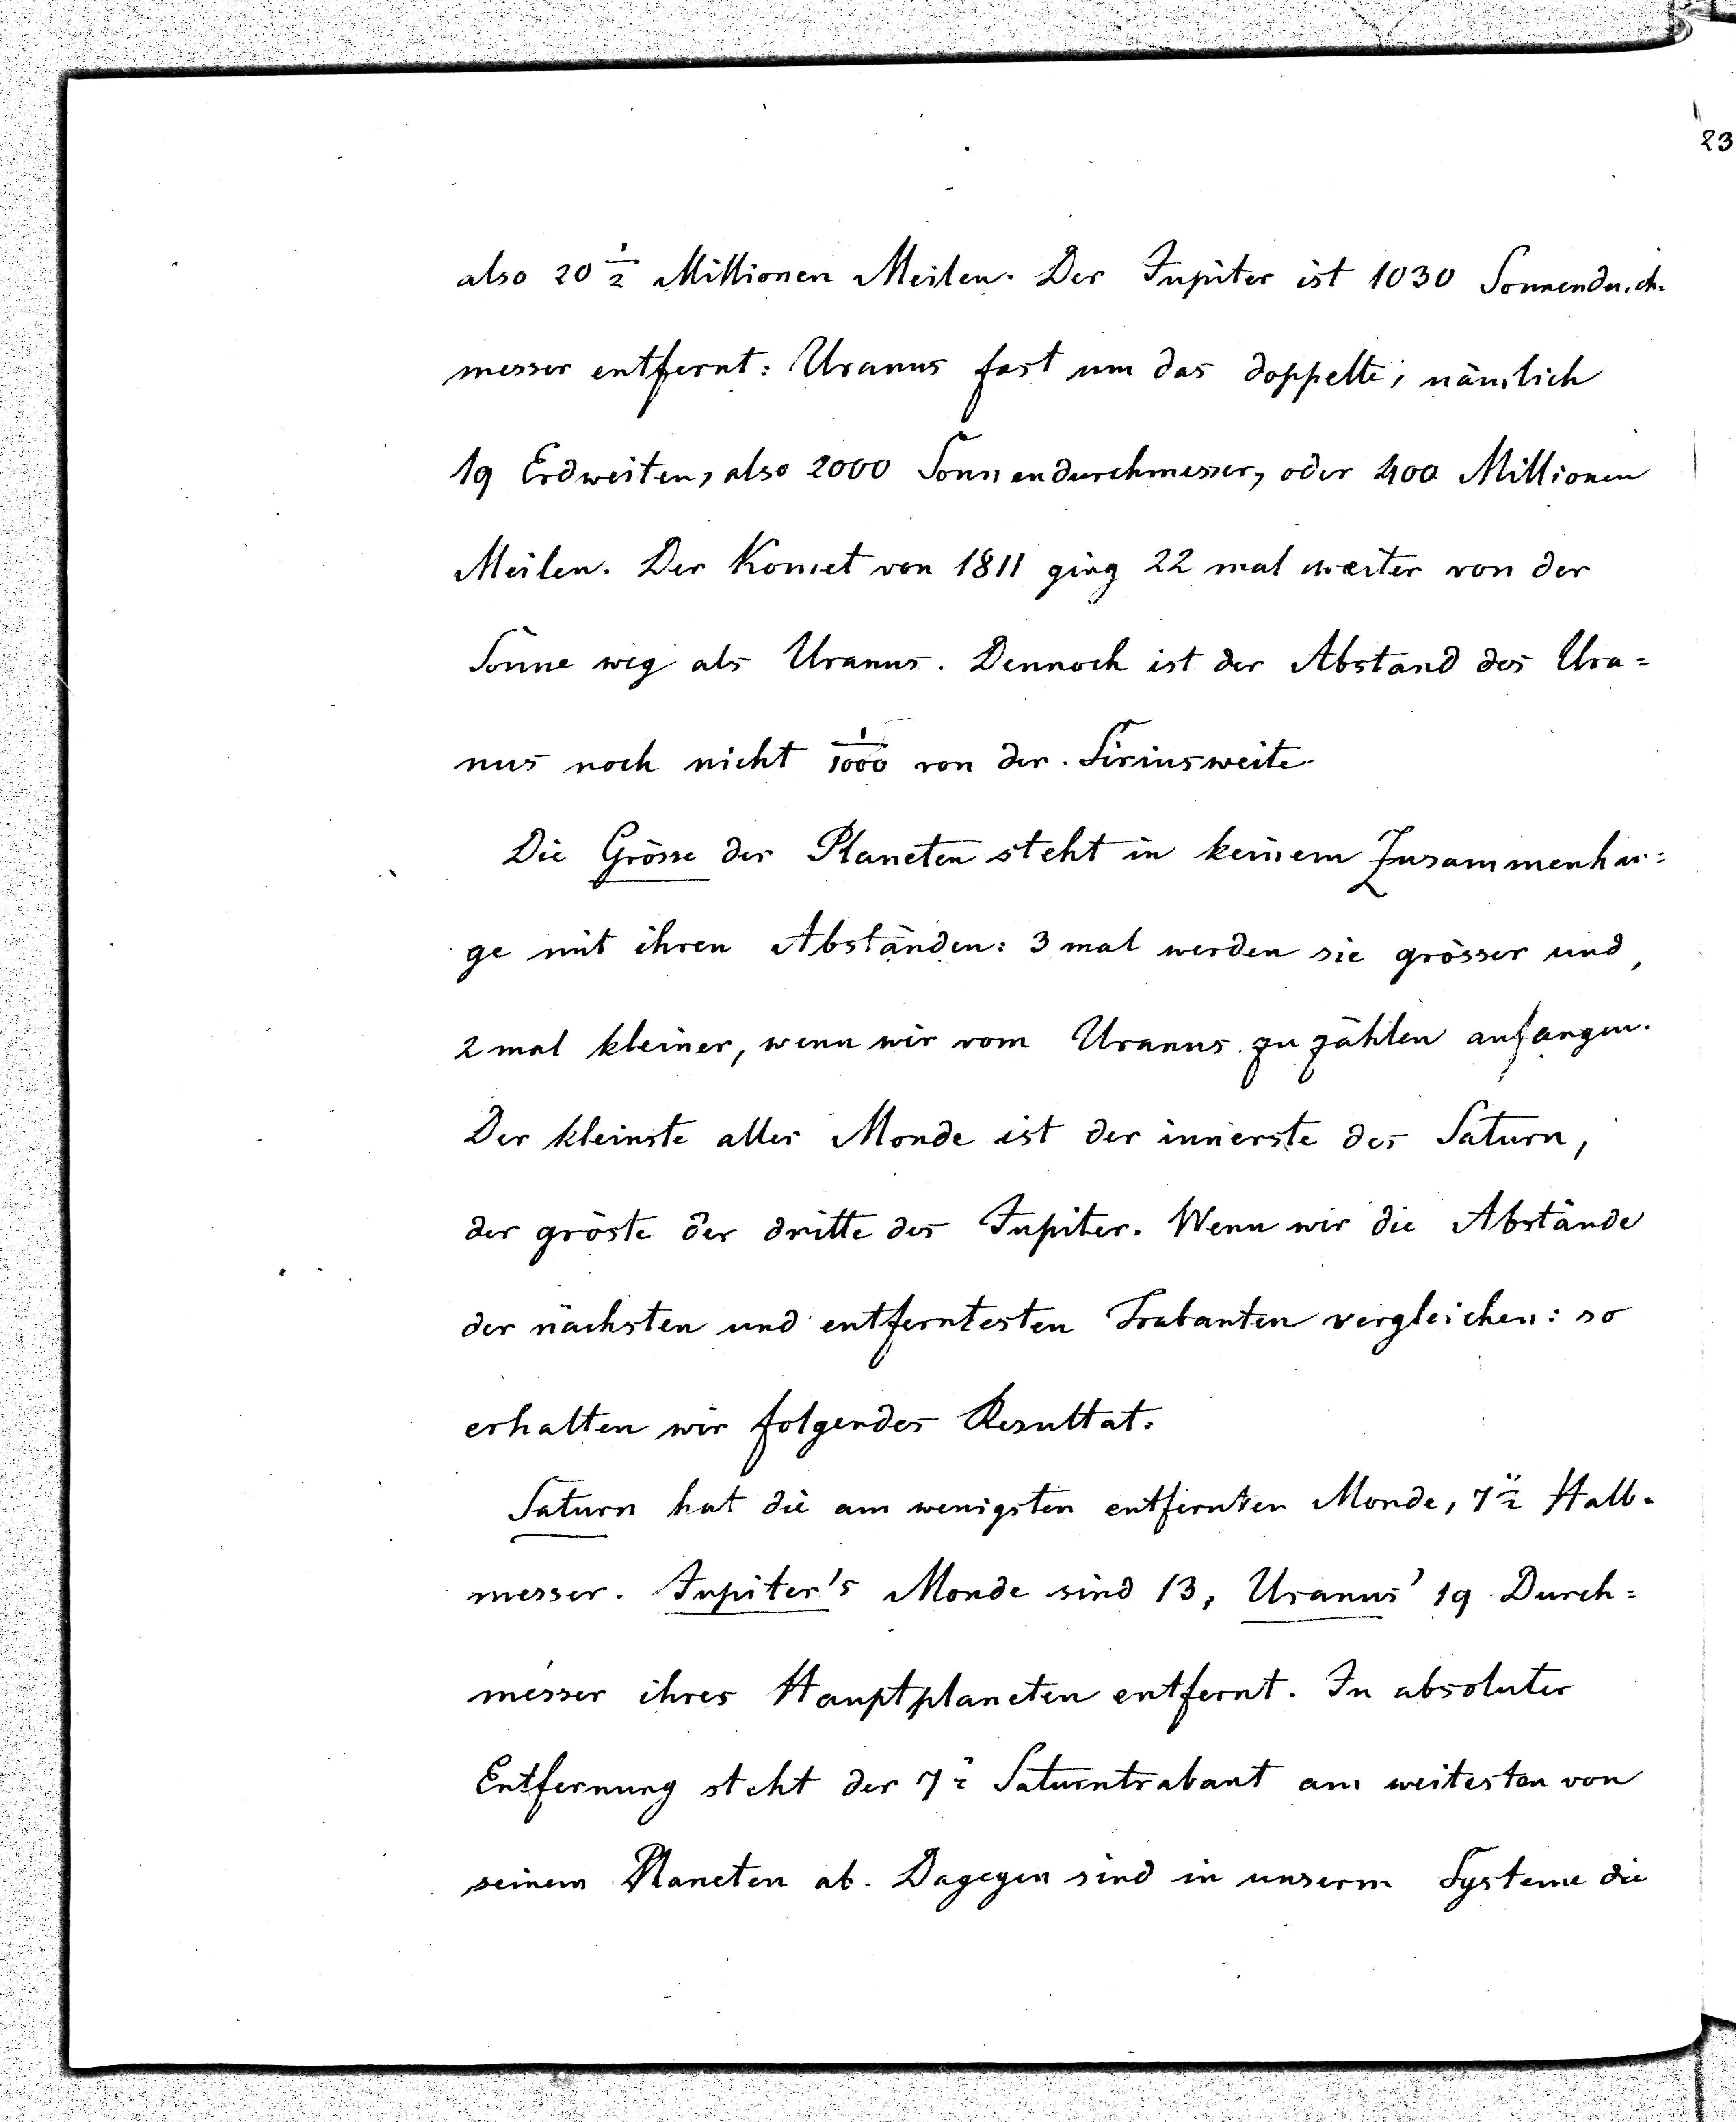 23
also 20 1/2 Millionen Meilen. Der Jupiter ist 1030 Sonnendurch-
messer entfernt: Uranus fast um das doppelte, nämlich
19 Erdweiten, also 2000 Sonnendurchmesser, oder 400 Millionen
Meilen. Der Komet von 1811 ging 22 mal weiter von der
Sonne weg als Uranus. Dennoch ist der Abstand des Ura=
nus noch nicht 1/1000 von der Siriusweite.
Die Grösse der Planeten steht in keinem Zusammenhan=
ge mit ihren Abständen: 3 mal werden sie grösser und,
2 mal kleiner, wenn wir vom Uranus zu zählen anfangen.
Der kleinste aller Monde ist der innerste des Saturn,
der gröste der dritte des Jupiter. Wenn wir die Abstände
der nächsten und entferntesten Trabanten vergleichen: so
erhalten wir folgendes Resultat:
Saturn hat die am wenigsten entfernten Monde, Halb-
messer. Jupiter's Monde sind 13, Uranus' 19 Durch=
messer ihres Hauptplaneten entfernt. In absoluter
Entfernung steht der 7te Saturntrabant am weitesten von
seinem Planeten ab. Dagegen sind in unserm Systeme die